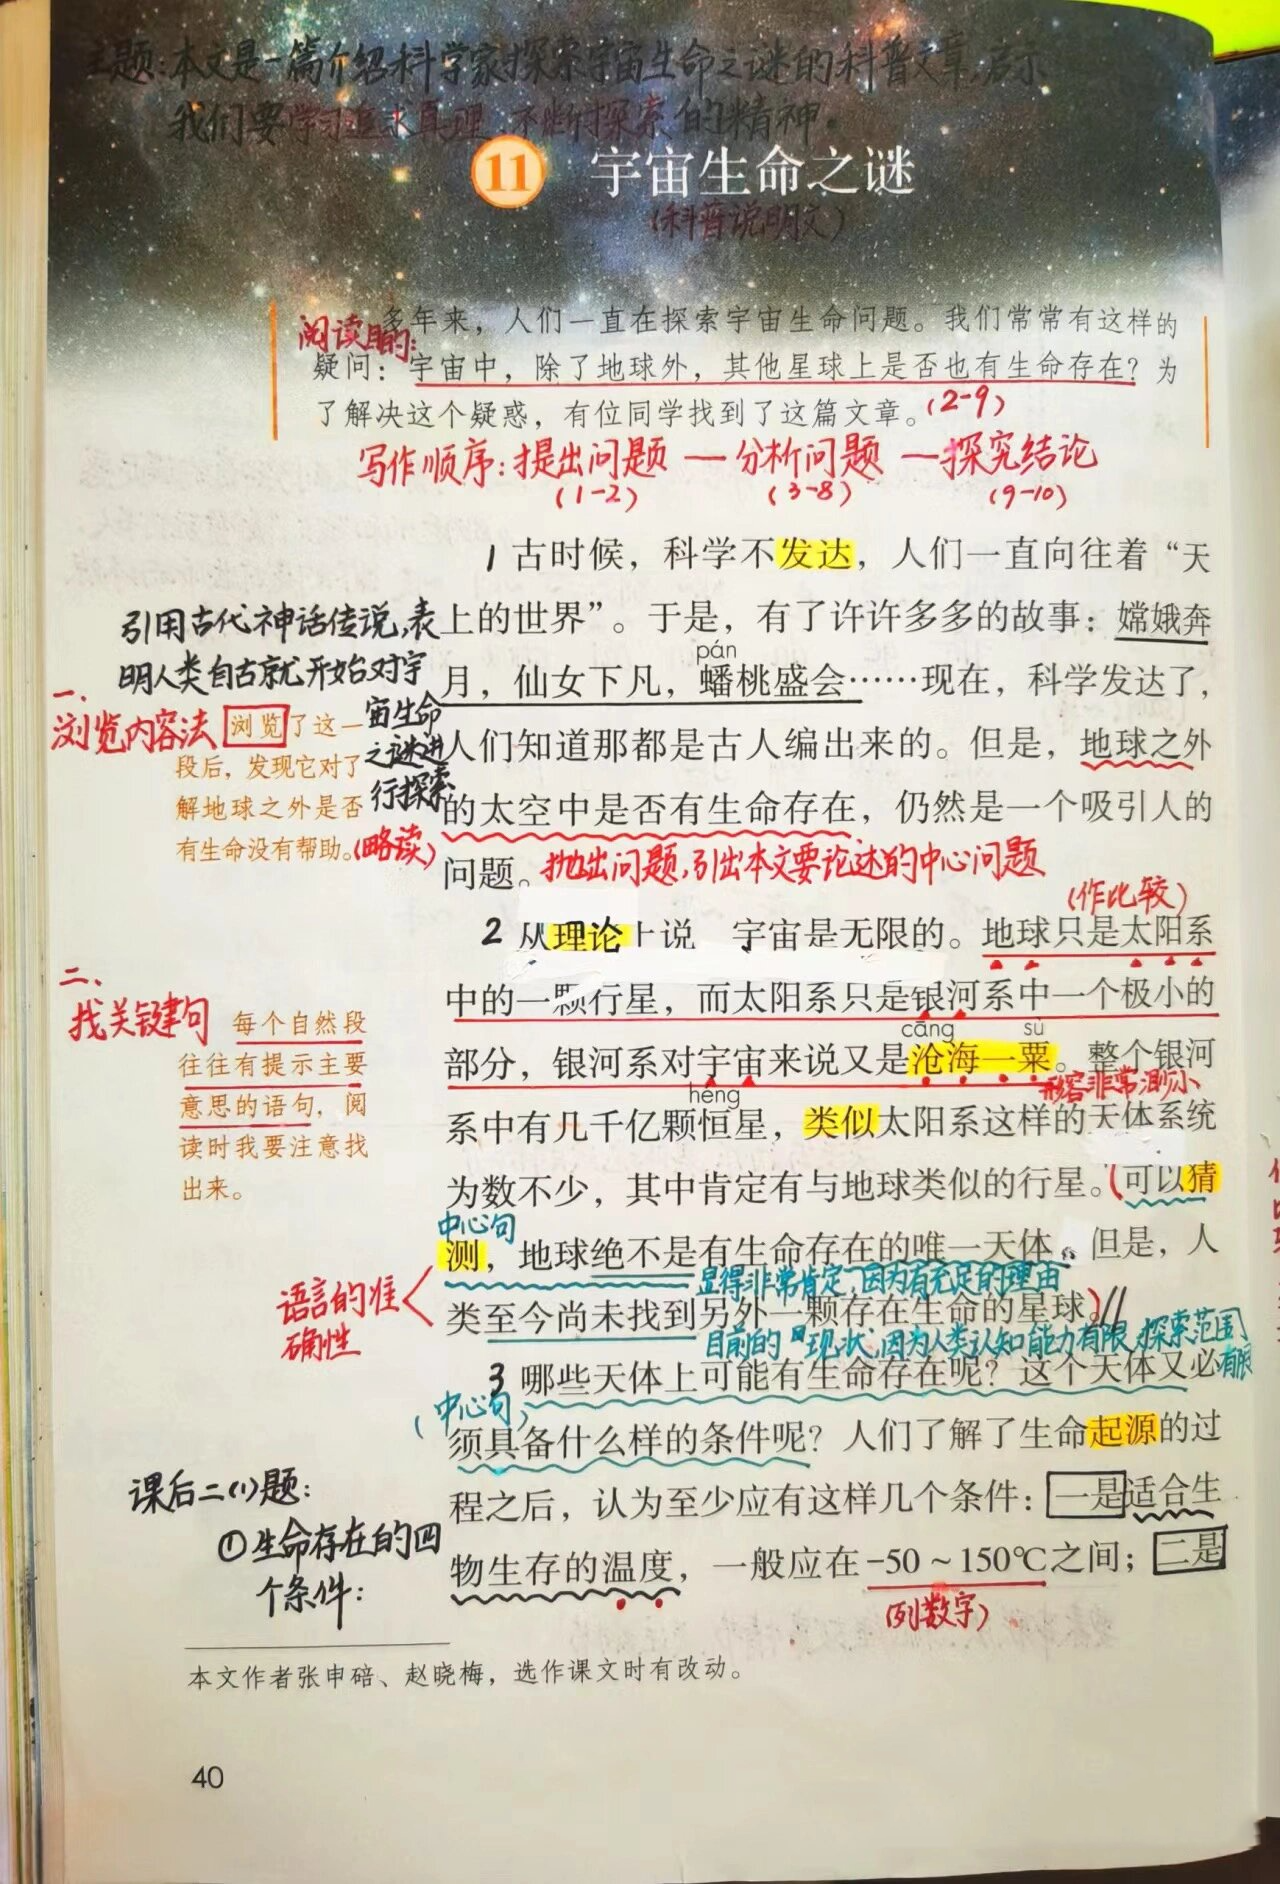 主题：本文是一篇介绍科学家探索宇宙生命之谜的科普文章，启示
我们要学习追求真理、不断探索的精神。
11 宇宙生命之谜
（科普说明文）
阅读目的：
多年来，人们一直在探索宇宙生命问题。我们常常有这样的
疑问：宇宙中，除了地球外，其他星球上是否也有生命存在？为
了解决这个疑惑，有位同学找到了这篇文章。(2-9)
写作顺序：提出问题—分析问题—探究结论
(1-2) (3-8) (9-10)
1 古时候，科学不发达，人们一直向往着“天
上的世界”。于是，有了许许多多的故事：嫦娥奔
pán
月，仙女下凡，蟠桃盛会……现在，科学发达了，
人们知道那都是古人编出来的。但是，地球之外
的太空中是否有生命存在，仍然是一个吸引人的
问题。抛出问题，引出本文要论述的中心问题
引用古代神话传说，表
明人类自古就开始对宇
宙生命
之谜进
行探索
一、
浏览内容法
浏览了这一
段后，发现它对了
解地球之外是否
有生命没有帮助。(略读)
(作比较)
2 从理论上说 宇宙是无限的。地球只是太阳系
中的一颗行星，而太阳系只是银河系中一个极小的
cāng sù
部分，银河系对宇宙来说又是沧海一粟。整个银河
形容非常渺小
héng
系中有几千亿颗恒星，类似太阳系这样的天体系统
为数不少，其中肯定有与地球类似的行星。(可以猜
中心句
测，地球绝不是有生命存在的唯一天体。但是，人
显得非常肯定，因为有充足的理由
类至今尚未找到另外一颗存在生命的星球。)//
目前的现状，因为人类认知能力有限，探索范围
有限
二、
找关键句
每个自然段
往往有提示主要
意思的语句，阅
读时我要注意找
出来。
语言的准
确性
3 哪些天体上可能有生命存在呢？这个天体又必
(中心句)
须具备什么样的条件呢？人们了解了生命起源的过
程之后，认为至少应有这样几个条件：一是适合生
物生存的温度，一般应在-50～150℃之间；二是
(列数字)
课后二(1)题：
①生命存在的四
个条件：
本文作者张申碚、赵晓梅，选作课文时有改动。
40